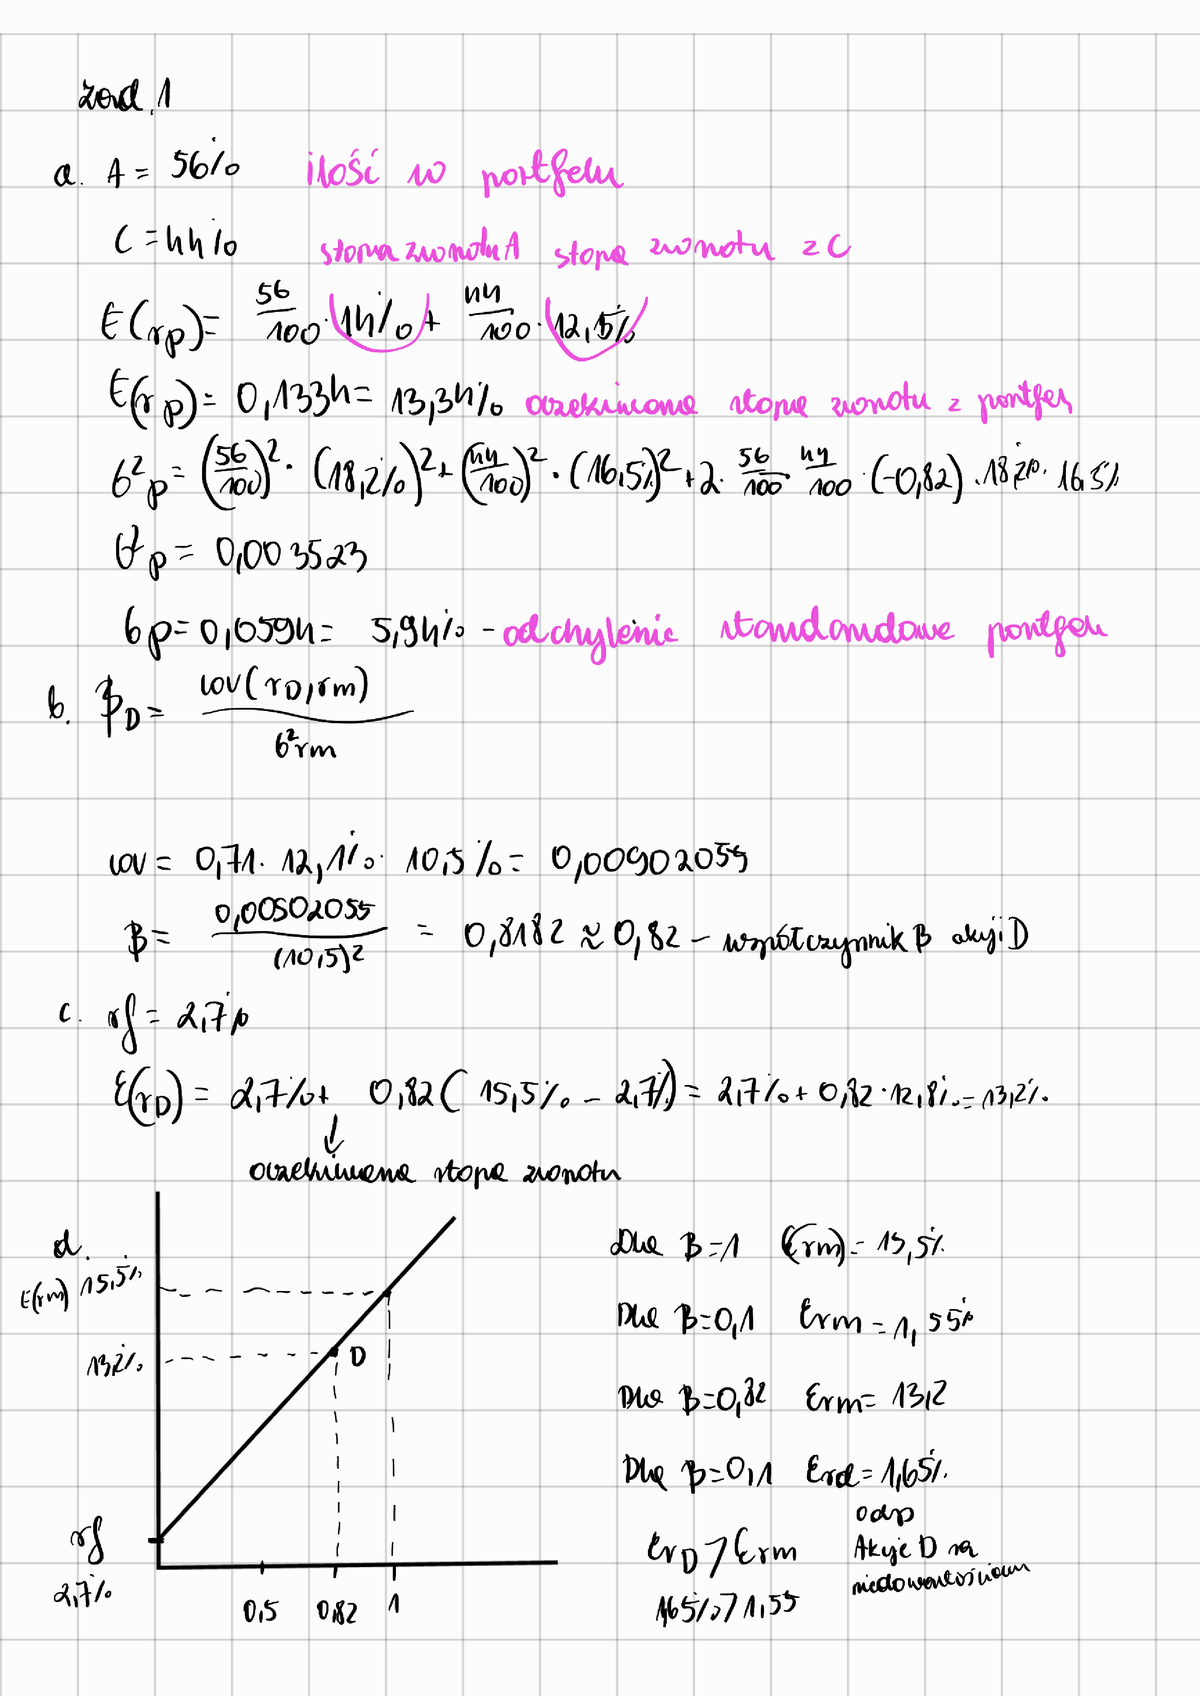 zad.1
a. A = 56% ilość w portfelu
C = 44% stopa zwrotu A stopa zwrotu z C
E(rp) = 56/100 · 14% + 44/100 · 12,5%
E(rp) = 0,1334 = 13,34% oczekiwana stopa zwrotu z portfela
б²p = (56/100)² · (18,2%)² + (44/100)² · (16,5%)² + 2 · 56/100 · 44/100 · (-0,82) · 18,2% · 16,5%
б²p = 0,003523
бp = 0,0594 = 5,94% - odchylenie standardowe portfela
b. βD = cov(rD, rm) / б²rm
cov = 0,71 · 12,1% · 10,5% = 0,00902055
β = 0,00902055 / (10,5)² = 0,8182 ≈ 0,82 - współczynnik β akcji D
c. rf = 2,7%
E(rD) = 2,7% + 0,82 ( 15,5% - 2,7%) = 2,7% + 0,82 · 12,8% = 13,2%
↓
oczekiwana stopa zwrotu
d.
E(rm) 15,5%
13,2%
D
rf
2,7%
0,5 0,82 1
Dla β=1 E(rm) = 15,5%
Dla β=0,1 Erm = 1,55%
Dla β=0,82 Erm = 13,2
Dla β=0,1 Erd = 1,65%
ErD > Erm
1,65% > 1,55
odp
Akcje D są
niedowartościowane